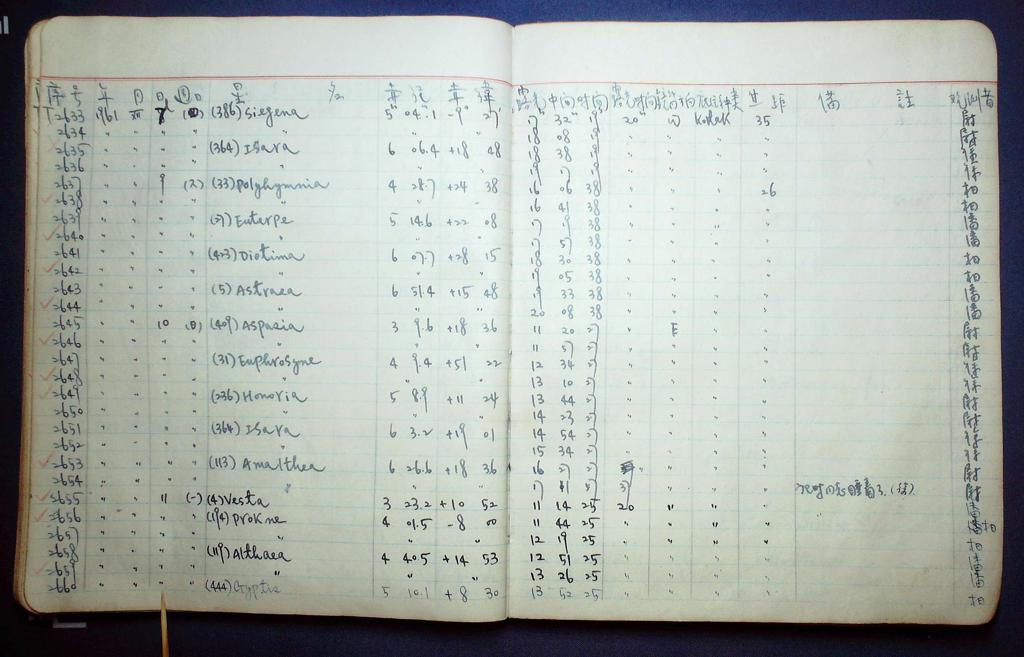 序号 年 月 日 週日 星 名 赤 经 赤 緯 露光中间时间 露光时间 底片种类 焦距 備 註 观测者
2633 1961 XII 7 (386) Siegena 5 04.1 -9 27 17 32 19 20 W Kodak 35
2634 " " " " " " " 18 08 19 " " " "
2635 " " " " (364) Isara 6 06.4 +18 48 18 38 19 " " " "
2636 " " " " " " " 19 19 " " " "
2637 " " 9 (33) Polyhymnia 4 28.7 +24 38 16 06 38 " " " 26 柏
2638 " " " " " " " 16 41 38 " " " " 柏
2639 " " " " (27) Euterpe 5 14.6 +22 08 17 19 38 " " " " 潘
2640 " " " " " " " 17 57 38 " " " " 潘
2641 " " " " (423) Diotima 6 07.7 +28 15 18 30 38 " " " " 柏
2642 " " " " " " " 19 05 38 " " " " 柏
2643 " " " " (5) Astraea 6 51.4 +15 48 19 33 38 " " " " 潘
2644 " " " " " " " 20 08 38 " " " " 潘
2645 " " 10 (日) (409) Aspasia 3 9.6 +18 36 11 20 27 " E " " 尉
2646 " " " " " " " 11 57 27 " " " " 尉
2647 " " " " (31) Euphrosyne 4 9.4 +51 22 12 34 27 " " " "
2648 " " " " " " " 13 10 27 " " " "
2649 " " " " (236) Honoria 5 8.9 +11 24 13 44 27 " " " " 尉
2650 " " " " " " " 14 23 27 " " " " 尉
2651 " " " " (364) Isara 6 3.2 +19 01 14 54 27 " " " "
2652 " " " " " " " 15 34 27 " " " "
2653 " " " " (113) Amalthea 6 26.6 +18 36 16 27 27 " " " " 尉
2654 " " " " " " " 17 11 27 " " " 尉
2655 " " 11 (一) (4) Vesta 3 23.2 +10 52 11 14 25 20 " " " 潘
2656 " " " " (194) Prokne 4 01.5 -8 00 11 44 25 " " " " 潘柏
2657 " " " " " " " 12 19 25 " " " " 柏
2658 " " " " (119) Althaea 4 40.5 +14 53 12 51 25 " " " " 潘
2659 " " " " " " " 13 26 25 " " " " 潘
2660 " " " " (444) Gyptis 5 10.1 +8 30 13 52 25 " " " " 柏